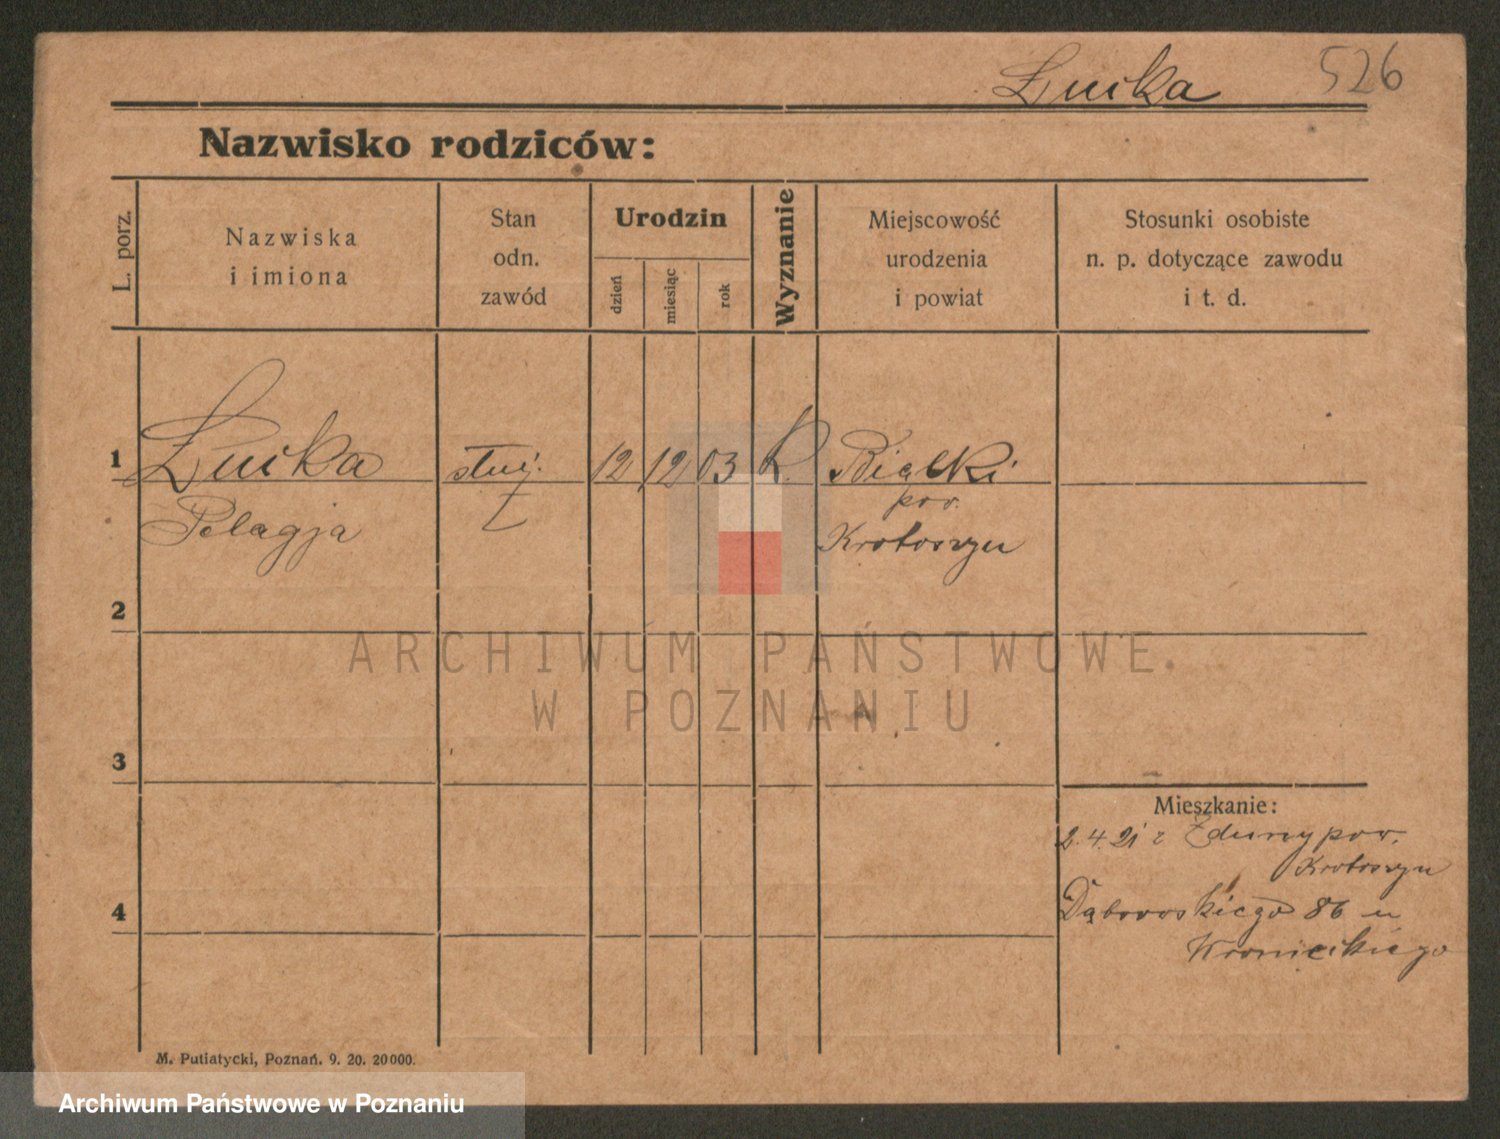 526
Nazwisko rodziców:
L. porz.
Nazwiska
i imiona
Stan
odn.
zawód
Urodzin
dzień
miesiąc
rok
Wyznanie
Miejscowość
urodzenia
i powiat
Stosunki osobiste
n. p. dotyczące zawodu
i t. d.
1
służ.
12
12
03
K.
Białki
Pelagja
pow.
Krotoszyn
2
3
4
Mieszkanie:
2.4.21 z Zduny pow.
Krotoszyn
Dąbrowskiego 86 u
M. Putiatycki, Poznań. 9. 20. 20000.
ARCHIWUM PAŃSTWOWE
W POZNANIU
Archiwum Państwowe w Poznaniu